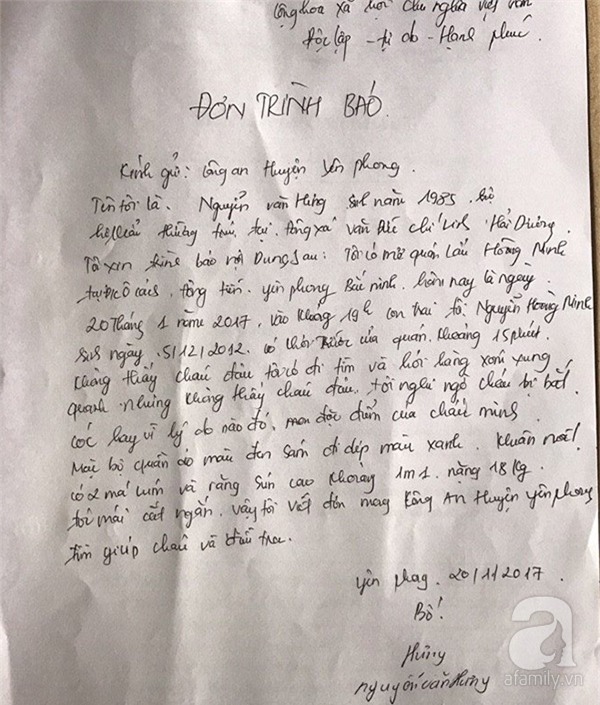 Cộng hoà xã hội chủ nghĩa việt nam
Độc lập - tự do - Hạnh phúc.
ĐƠN TRÌNH BÁO.
Kính gửi: Công an Huyện yên phong.
Tên tôi là. Nguyễn văn Hưng sinh năm 1985.
thường trú. tại. xã văn Đức chí Linh Hải Dương.
Tôi xin trình báo nội Dung sau: Tôi có mở quán Lẩu Hồng Ninh
tại yên phong Bắc ninh. hôm nay là ngày
20 tháng 1 năm 2017. vào khoảng 19h con trai tôi Nguyễn Hoàng Ninh
ngày 5/12/2012. có trước cửa quán. khoảng 15 phút.
không thấy cháu đâu tôi có đi tìm và hỏi hàng xóm xung
quanh nhưng không thấy cháu đâu. tôi nghi ngờ cháu bị bắt
cóc hay vì lý do nào đó. đặc điểm của cháu mình
Mặc bộ quần áo màu đen đi dép màu xanh. khuân mặt
có 2 má lúm và răng sún cao khoảng 1m1. nặng 18kg.
tóc mái cắt ngắn. vậy tôi viết đơn này Công An Huyện yên phong
tìm giúp cháu và điều tra.
yên phong. 20/1/2017.
Bố!
Hưng
nguyễn văn Hưng
a
afamily.vn